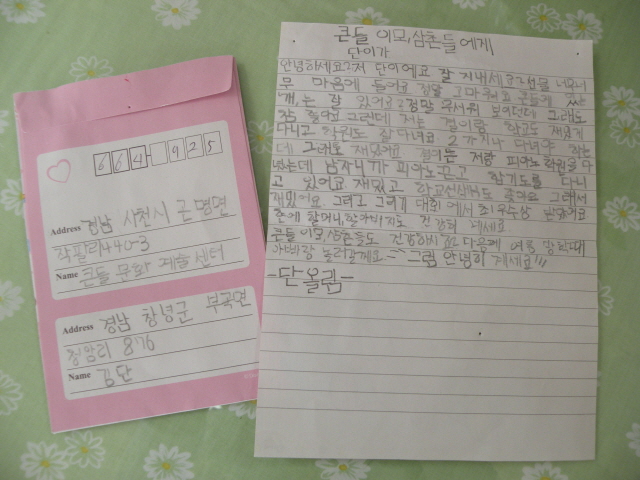 664-925
Address 경남 사천시 곤명면
작팔리440-3
Name 큰들 문화 예술 센터
Address 경남 창녕군 부곡면
청암리 876
Name 김단
큰들 이모,삼촌들에게
단이가
안녕하세요? 저 단이에요 잘 지내세요? 선물 너무너
무 마음에 들어요 정말 고마워요 큰들에
개,는 잘 있어요? 정말 무서워 보이던데 그래도
참 좋아요 그런데 저는 결이랑 학교도 재밌게
다니고 학원도 잘 다녀요 2가지나 다녀야 하는
데 그래도 재밌어요 결이는 저랑 피아노 학원을 다
녔는데 남자니까 피아노 끊고 합기도를 다니
고 있어요 재밌고 학교선생님도 좋아요 그래서
재밌어요 그리고 그리기 대회에서 최우수상 받았어요
할머니,할아버지도 건강히 계세요
큰들 이모,삼촌들도 건강하시고 다음에 여름 방학때
놀러갈게요 ~ 그럼 안녕히 계세요!!!
-단올림-